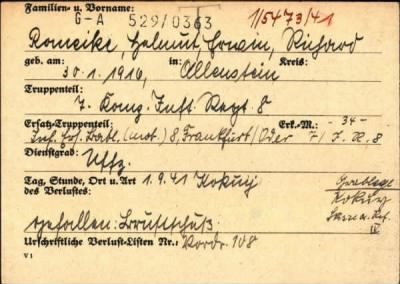 Familien- u. Vorname:
G-A 529/0363 1/5473/41
Romeike, Helmut, Erwin, Richard
geb. am: in: Kreis:
30.1.1916, Allenstein
Truppenteil:
7. Komp. Inft. Regt. 8
Ersatz-Truppenteil: Erk.-M.: -34-
Inf. Ers. Batl. (mot.) 8, Frankfurt/Oder 7/ J.R. 8
Dienstgrad:
Uffz.
Tag, Stunde, Ort u. Art 1.9.41 Kokuij
des Verlustes:
Grablage
Kokuij
IV
gefallen: Brustschuß.
Urschriftliche Verlust-Listen Nr.: Nordr. 108
V 1